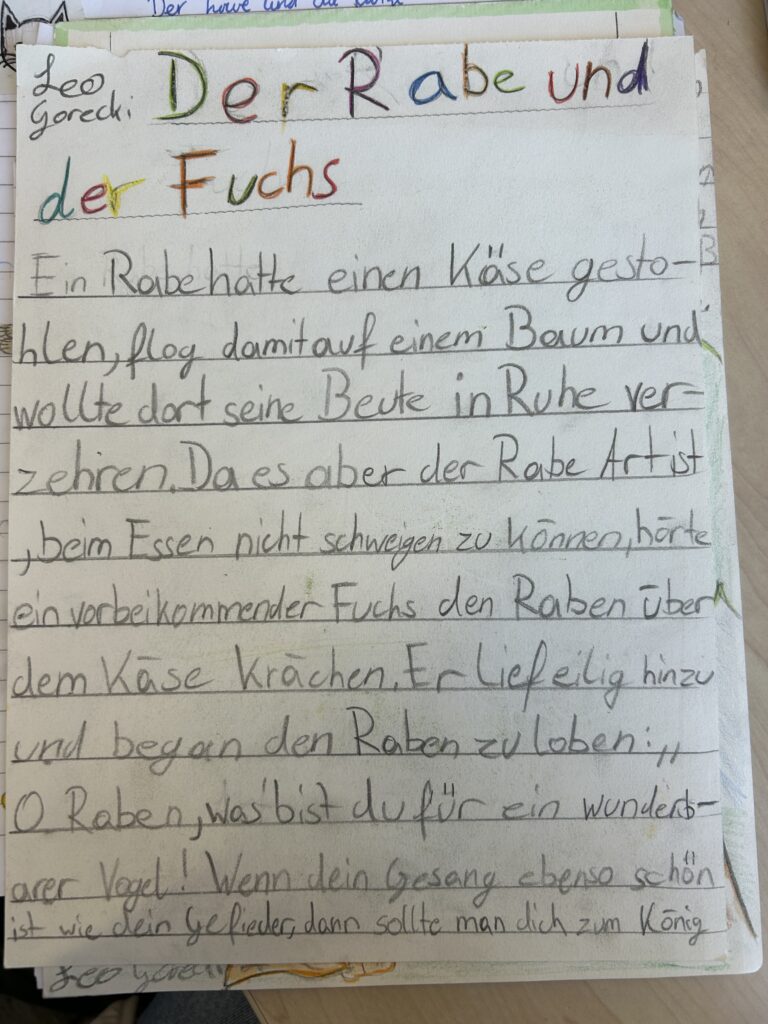 Der Löwe und die
Leo
Gorecki
Der Rabe und
der Fuchs
Ein Rabe hatte einen Käse gesto-
hlen, flog damit auf einem Baum und
wollte dort seine Beute in Ruhe ver-
zehren. Da es aber der Rabe Art ist
, beim Essen nicht schweigen zu können, hörte
ein vorbeikommender Fuchs den Raben über
dem Käse Krächen. Er lief eilig hinzu
und began den Raben zu loben: „
O Raben, was bist du für ein wunderb-
arer Vogel! Wenn dein Gesang ebenso schön
ist wie dein Gefieder, dann sollte man dich zum König
Leo Gorecki